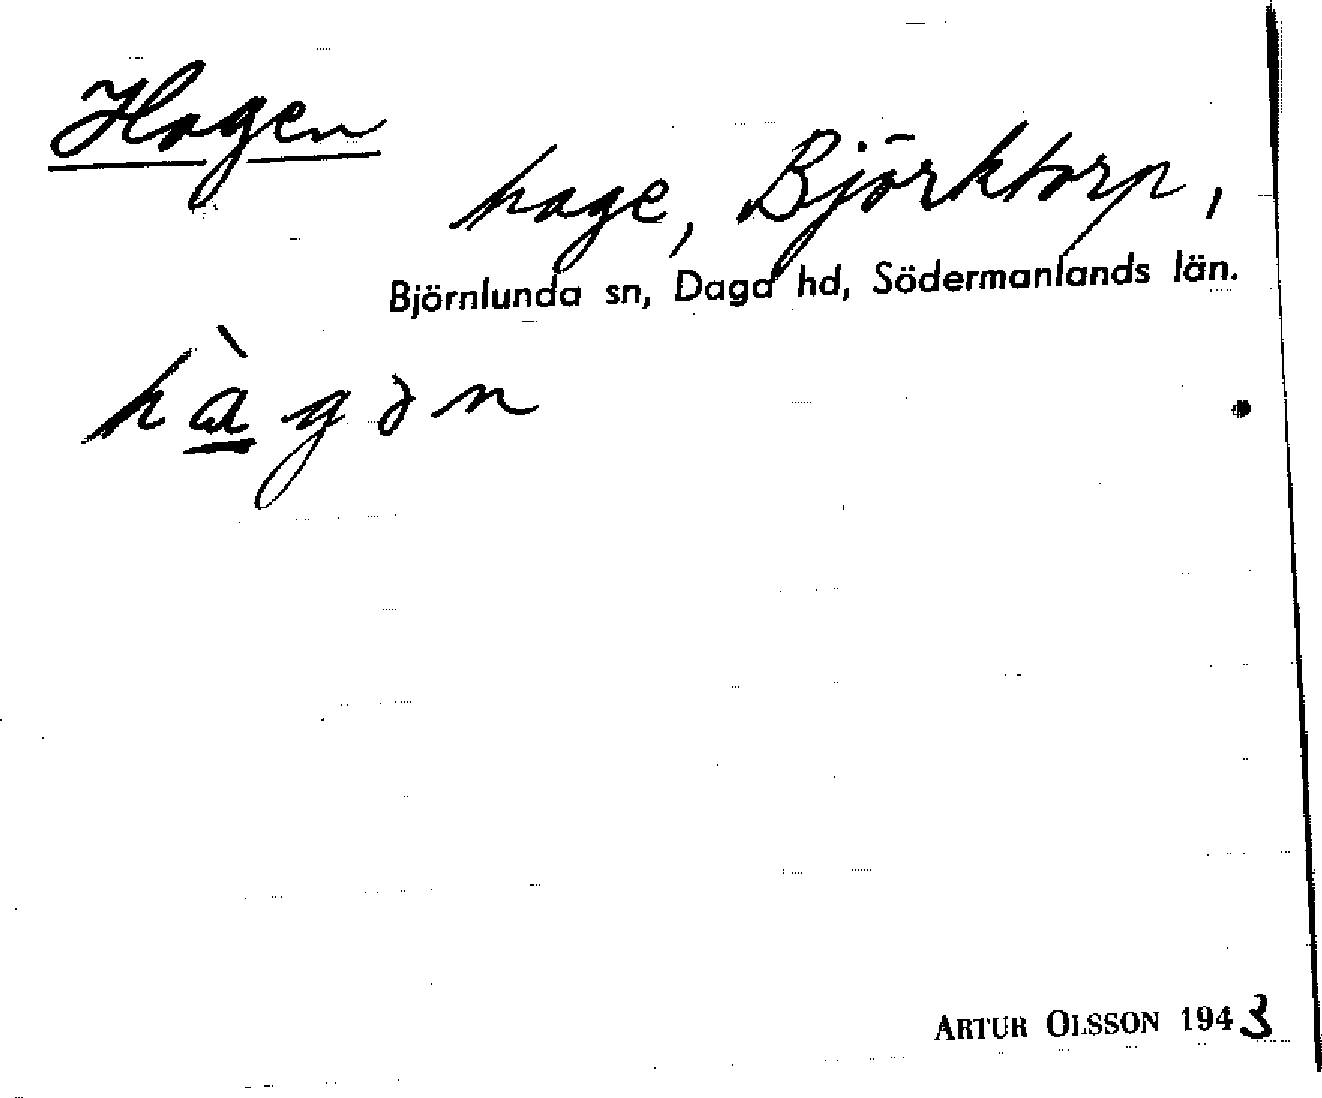 Hagen
hage, Björktorp,
Björnlunda sn, Daga hd, Södermanlands län.
hàgən
ARTUR OLSSON 1943